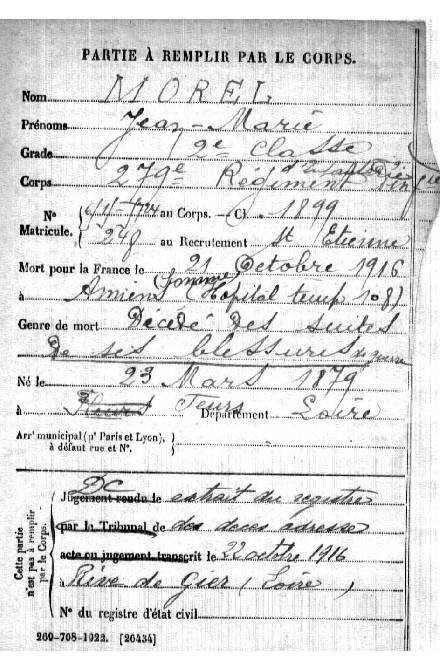 PARTIE À REMPLIR PAR LE CORPS.
Nom MOREL
Prénoms Jean-Marie
Grade 2e Classe
Corps 279e Régiment d'Infanterie
N° Matricule. au Corps. — Cl. 1899
248 au Recrutement St Etienne
Mort pour la France le 21 Octobre 1916
à Amiens (Somme) (Hopital temp 108)
Genre de mort Décédé des suites
De ses blessures de guerre
Né le 23 Mars 1879
à Feurs Département Loire
Arrt municipal (pr Paris et Lyon), à défaut rue et N°.
Cette partie n'est pas à remplir par le Corps.
Jugement rendu le extrait du registre
par le Tribunal de des deces adresse
acte ou jugement transcrit le 22 octobre 1916
à Rive de Gier (Loire)
N° du registre d'état civil
260-708-1922. [26434]